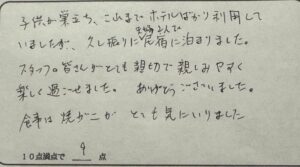 子供が巣立ち、これまでホテルばかり利用して
いましたが、久し振りに夫婦2人で民宿に泊まりました。
スタッフの皆さんがとても親切で親しみやすく
楽しく過ごせました。ありがとうございました。
食事は焼がニがとても気にいりました
10点満点で 9 点